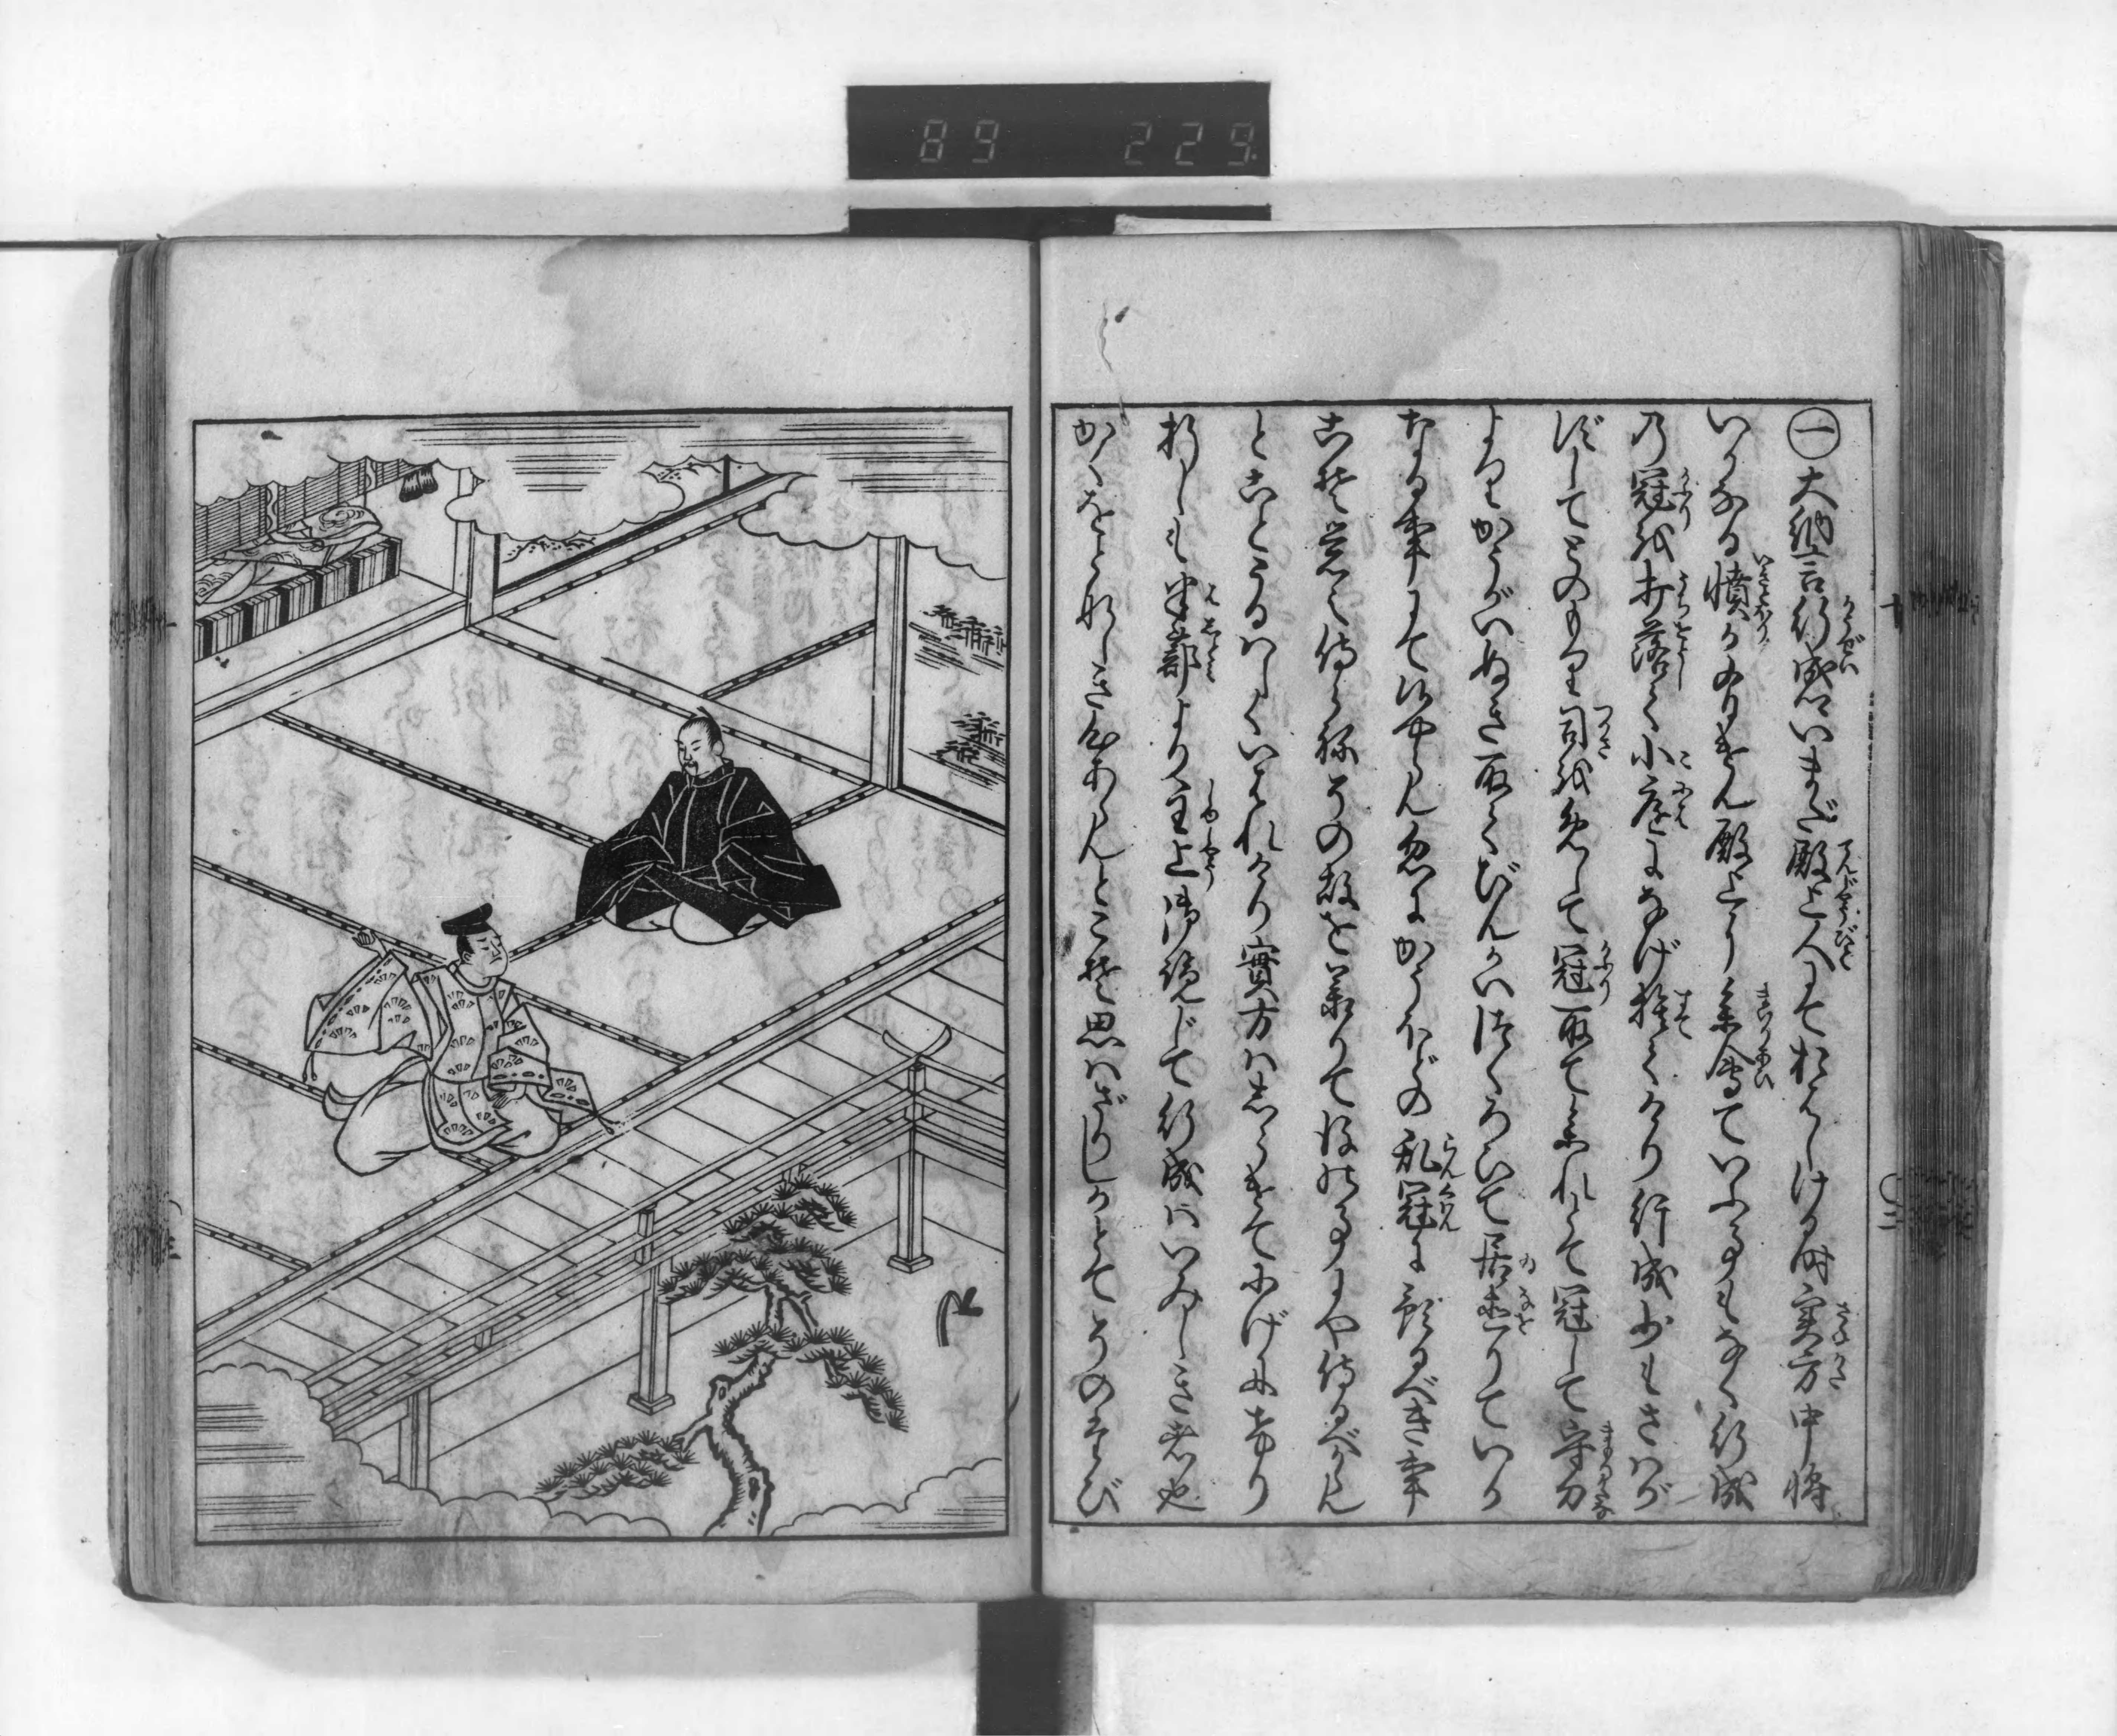 89 229
㊀大納言行成卿いまだ殿上人にておはしける時実方中将
いかなる憤か有けん殿上に参会ていふ事もなく行成
の冠を打落して小庭になげ捨てけり行成少もさはが
ずしてとのもり司を召て冠取て参れとて冠して守刀
よりかうがいぬき取てびんかいつくろひて居直りていか
なる事にて候やらん忽にかうほどの乱冠に預るべき事
こそ覚え侍らねその故を承りて後の事にや侍るべからん
とことうるはしくいはれけり実方はしらけてにげにけり
折しも半蔀より主上御覧じて行成はいみじき者也
かくをとなしき心あらんとこそ思はざりしかとてそのたび